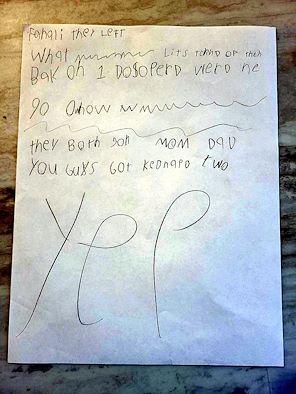 Fahali they Left
What Lits tekhd op then
Bak on 1 Dosoperd Werd he
go Ohow
they Both son MOM DaD
You Guys Got Kednaped two
Yep